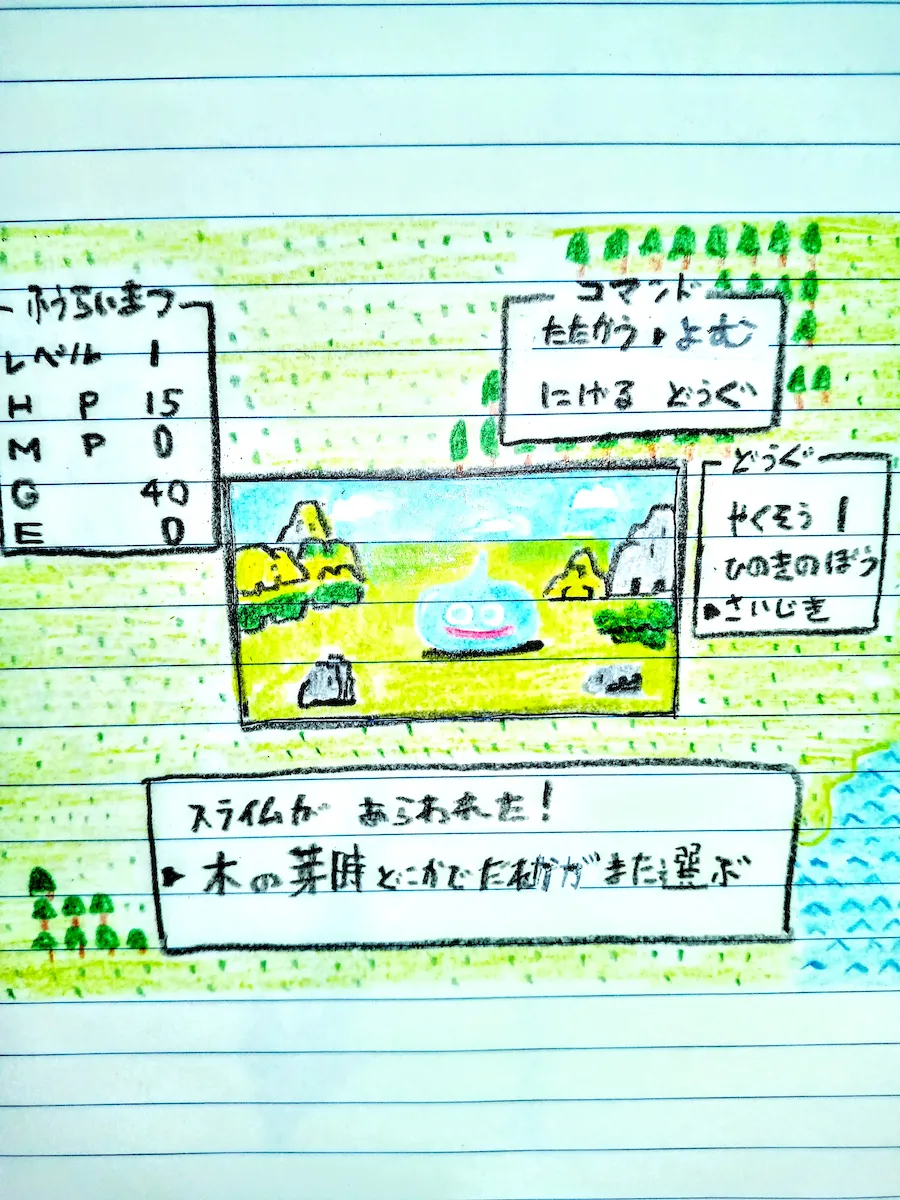 ふうらいまつ
レベル 1
H P 15
M P 0
G 40
E 0
コマンド
たたかう ▶よむ
にげる どうぐ
どうぐ
やくそう 1
ひのきのぼう
▶さいじき
スライムが あらわれた!
▶木の芽時どこかでだれかがまた選ぶ